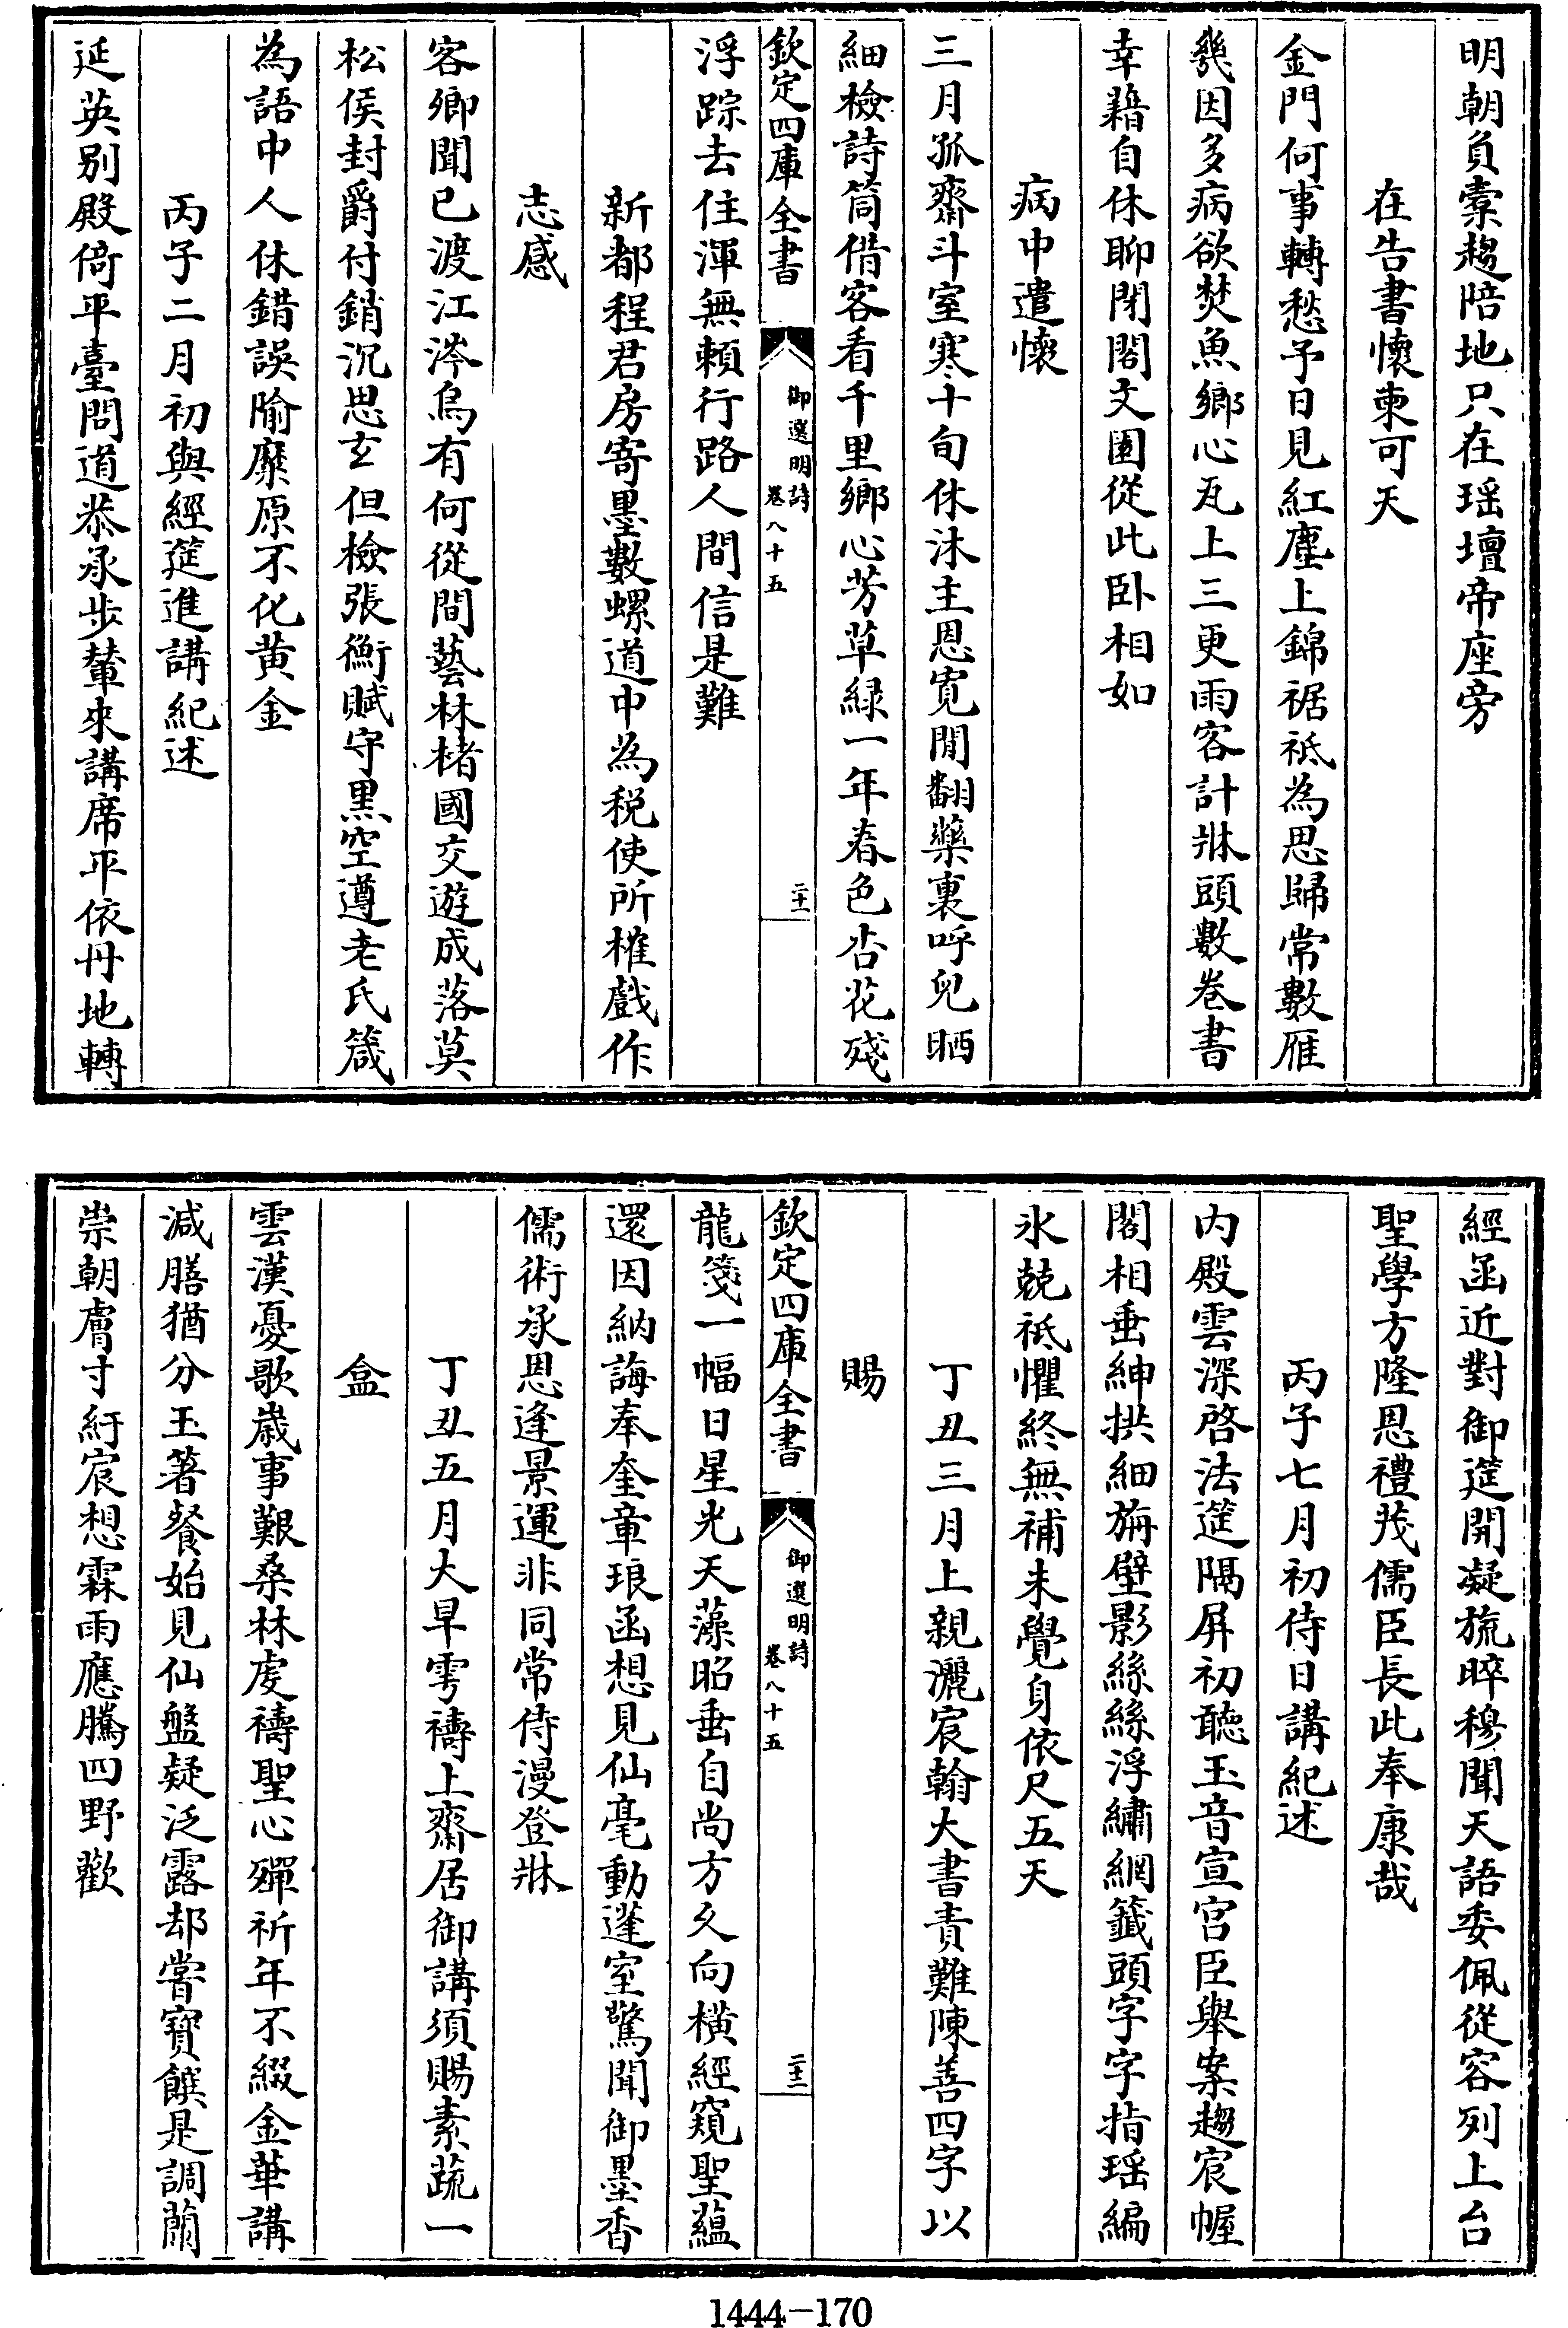 明朝負橐趨陪地只在瑶壇帝座旁
在告書懷柬可天
金門何事轉愁予日見紅塵上錦裾祗為思歸常數雁
幾因多病欲焚魚鄉心瓦上三更雨客計牀頭數卷書
幸藉自休聊閉閣文園從此卧相如
病中遣懷
三月孤齋斗室寒十旬休沐主恩寛閒翻藥裹呼兒晒
細檢詩筒借客看千里鄉心芳草緑一年春色杏花殘
欽定四庫全書
御選明詩
卷八十五
二十一
浮踪去住渾無頼行路人間信是難
新都程君房寄墨數螺道中為税使所榷戲作
志感
客卿聞已渡江涔烏有何從間藝林楮國交遊成落莫
松侯封爵付銷沉思玄但檢張衡賦守黒空遵老氏箴
為語中人休錯誤隃糜原不化黄金
丙子二月初與經筵進講紀述
延英别殿倚平臺問道恭承步輦來講席平依丹地轉
經函近對御筵開凝旒睟穆聞天語委佩從容列上台
聖學方隆恩禮茂儒臣長此奉康哉
丙子七月初侍日講紀述
内殿雲深啓法筵隔屏初聽玉音宣宫臣舉案趨宸幄
閣相垂紳拱細旃壁影絲絲浮繡網籤頭字字指瑶編
氷兢祗懼終無補未覺身依尺五天
丁丑三月上親灑宸翰大書責難陳善四字以
賜
欽定四庫全書
御選明詩
卷八十五
二十二
龍箋一幅日星光天藻昭垂自尚方久向横經窺聖藴
還因納誨奉奎章琅函想見仙毫動蓬室驚聞御墨香
儒術承恩逢景運非同常侍漫登牀
丁丑五月大旱雩禱上齋居御講須賜素蔬一
盒
雲漢憂歌歲事艱桑林虔禱聖心殫祈年不綴金華講
減膳猶分玉箸餐始見仙盤疑泛露却嘗寶饌是調蘭
崇朝膚寸紆宸想霖雨應騰四野歡
1444-170